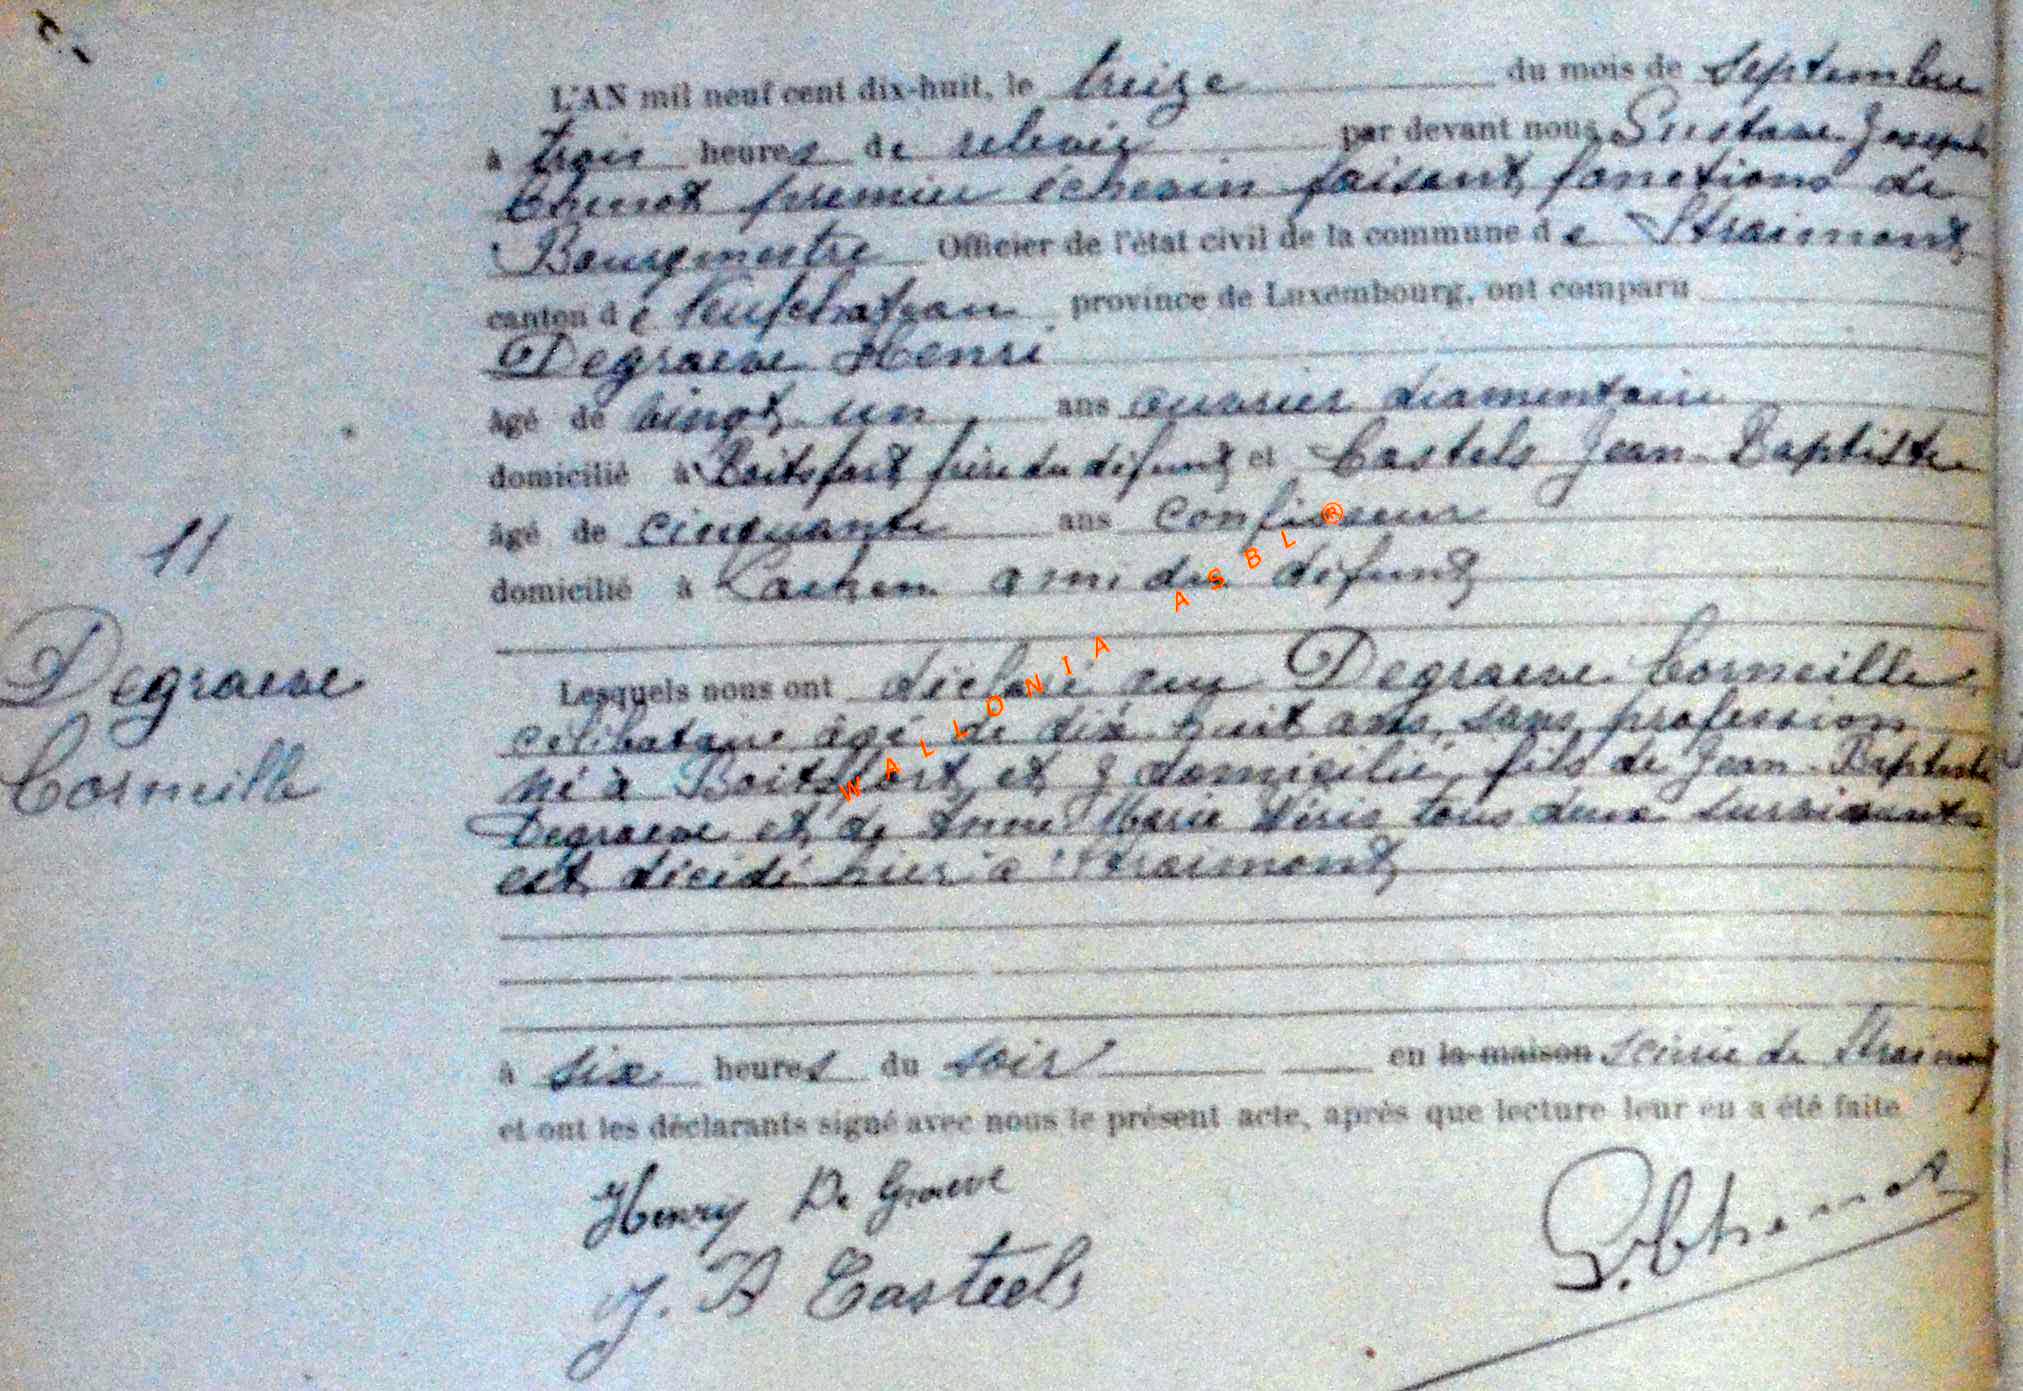 L'AN mil neuf cent dix-huit, le treize du mois de septembre
à trois heures de relevée par devant nous, Gustave Joseph
premier échevin faisant fonctions de
Bourgmestre Officier de l'état civil de la commune de Straimont
canton de Neufchateau province de Luxembourg, ont comparu
Degraeve Henri
âgé de vingt un ans ouvrier diamentaire
domicilié à Boitsfort frère du défunt et Castels Jean-Baptiste
âgé de cinquante ans confiseur
domicilié à Laeken ami du défunt
11
Degraeve
Corneille
Lesquels nous ont déclaré que Degraeve Corneille
célibataire âgé de dix huit ans, sans profession
né à Boitsfort et y domicilié, fils de Jean-Baptiste
Degraeve et de Anne Marie tous deux survivants
est décédé hier à Straimont
à six heures du soir en la maison scierie de Straimont
et ont les déclarants signé avec nous le présent acte, après que lecture leur en a été faite
Henry De Graeve
J. B Casteels
WALLONIA ASBL ®